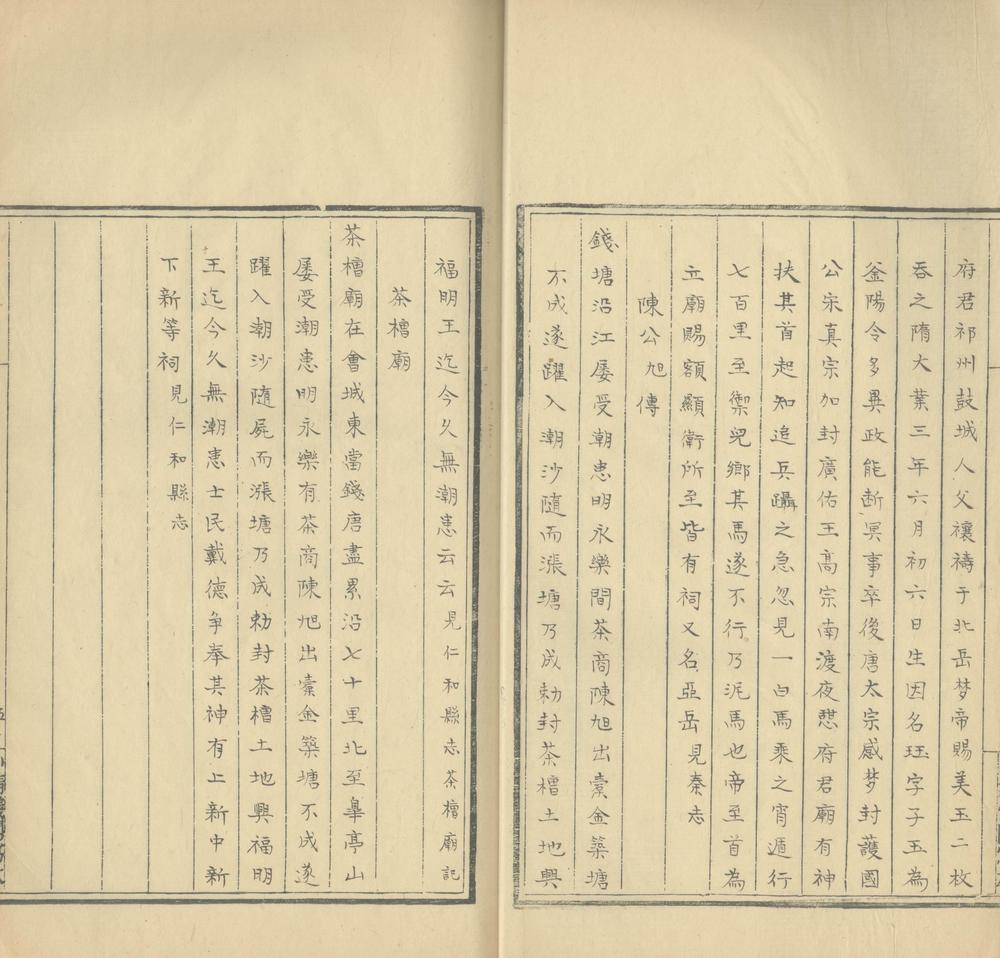 府君祁州鼓城人父禳禱于北岳梦帝賜美玉二枚
吞之隋大業三年六月初六日生因名珏字子玉為
釜陽令多異政能断冥事卒後唐太宗感梦封護國
公宋真宗加封廣佑王高宗南渡夜憇府君廟有神
扶其首起知追兵躡之急忽見一白馬乘之宵遁行
七百里至禦兒鄉其馬遂不行乃泥馬也帝至首為
立廟賜額顯衛所至皆有祠又名亞岳見秦志
陳公旭傳
錢塘沿江屡受潮恚明永樂間茶商陳旭出橐金築塘
不成遂躍入潮沙隨而漲塘乃成勅封茶槽土地興
福明王迄今久無潮恚云云見仁和縣志茶槽廟記
茶槽廟
茶槽廟在會城東當錢唐盡累沿七十里北至皋亭山
屡受潮恚明永樂有茶商陳旭出橐金築塘不成遂
躍入潮沙隨屍而漲塘乃成勅封茶槽土地興福明
王迄今久無潮恚士民戴德争奉其神有上新中新
下新等祠見仁和縣志